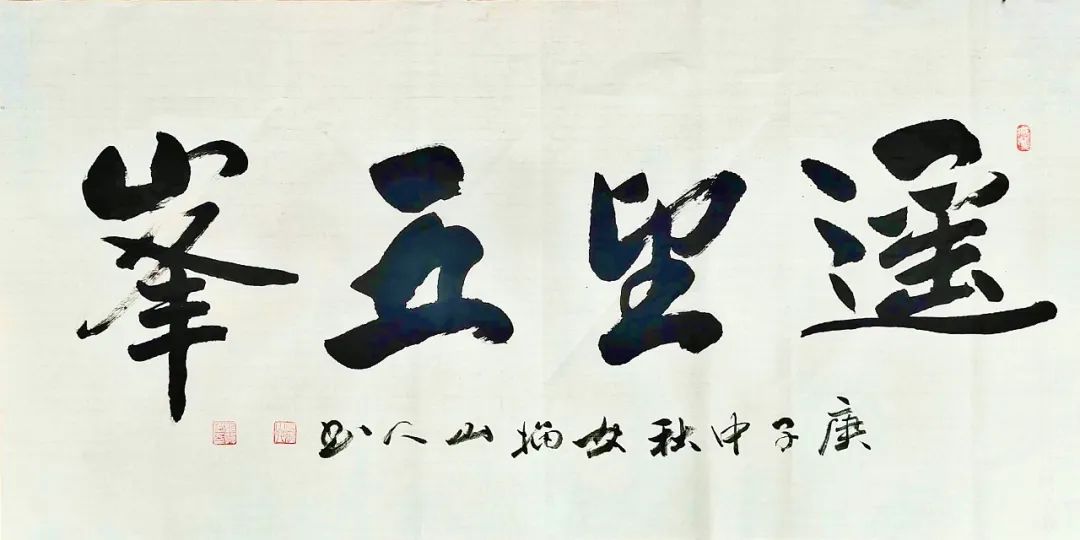 遥望五峯
庚子中秋女媌山人书